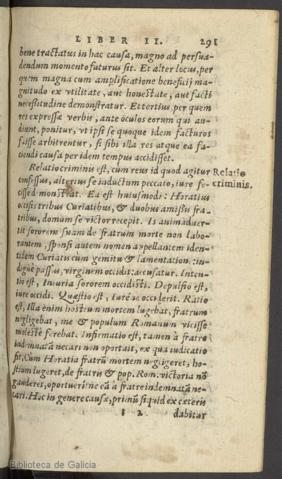 LIBER II. 291
bene tractatus in hac causa, magno ad persua-
dendum momento futurus sit. Et alter locus, per
quem magna cum amplificatione beneficij ma-
gnitudo ex vtilitate, aut honestate, aut facti
necessitudine demonstratur. Et tertius per quem
res expressæ verbis, ante oculos eorum qui au-
diunt, ponitur, vt ipsi se quoque idem facturos
fuisse arbitrentur, si sibi illa res atque ea fa-
ciendi causa per idem tempus accidisset.
Relatio criminis est, cum reus id quod agitur Relatio
confessus, alterius se inductum peccato, iure fe- criminis.
cisse demonstrat. Ea est huiusmodi: Horatius
occisis tribus Curiatibus, & duobus amissis fra-
tribus, domum se victor recepit. Is animaduer-
tit sororem suam de fratrum morte non labo-
rantem, sponsi autem nomen appellantem iden-
tidem Curiatij cum gemitu & lamentatione: in-
dignè passus, virginem occidit: accusatur. Inten-
tio est, Iniuria sororem occidisti. Depulsio est,
iure occidi. Quæstio est, Iuré ne occiderit. Ratio
est, Illa enim hostium mortem lugebat, fratrum
negligebat, me & populum Romanum vicisse
molestè ferebat. Infirmatio est, tamen à fratre
indemnatā necari non oportuit, ex qua iudicatio
fit, Cùm Horatia fratrū mortem negligeret, ho-
stium lugeret, de fratris & pop. Rom. victoria nō
gauderet, oportuerit ne eā à fratre indemnatā ne-
cari. Hoc in genere causæ, primū si quid ex cæteris
2 dabitur
Biblioteca de Galicia